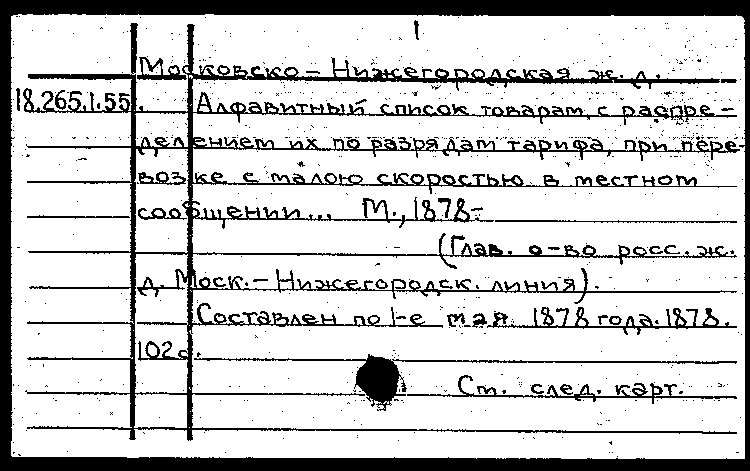 1
Московско-Нижегородская ж. д.
18.265.1.55. Алфавитный список товарам, с распре-
делением их по разрядам тарифа, при пере-
возке с малою скоростью в местном
сообщении... М., 1878-
(Глав. о-во росс. ж.
д. Моск.-Нижегородск. линия).
Составлен по 1-е мая 1878 года. 1878.
102 с.
См. след. карт.